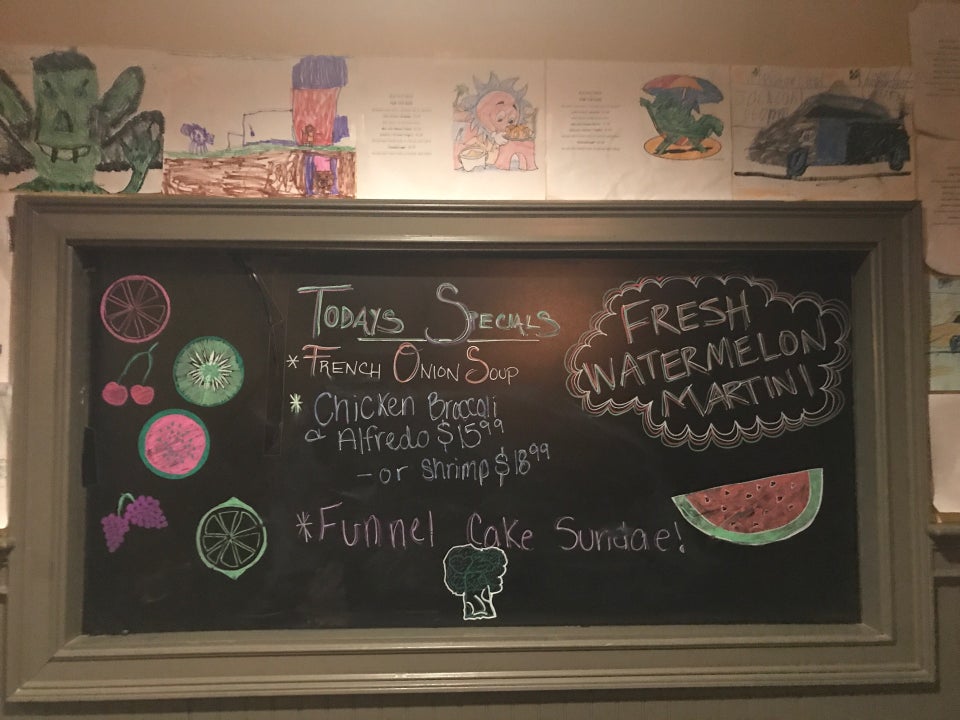 TODAYS SPECIALS
* FRENCH ONION SOUP
* Chicken Broccoli
& Alfredo $15.99
- or Shrimp $18.99
*Funnel Cake Sundae!
FRESH
WATERMELON
MARTINI